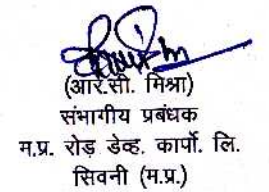 (आर.सी. मिश्रा)
संभागीय प्रबंधक
म.प्र. रोड़ डेव्ह. कार्पो. लि.
सिवनी (म.प्र.)